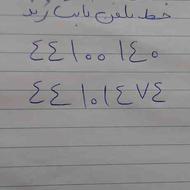 خط تلفن ثابت رند
٤٤١٠٠١٤٠
٤٤١٠١٤٧٤